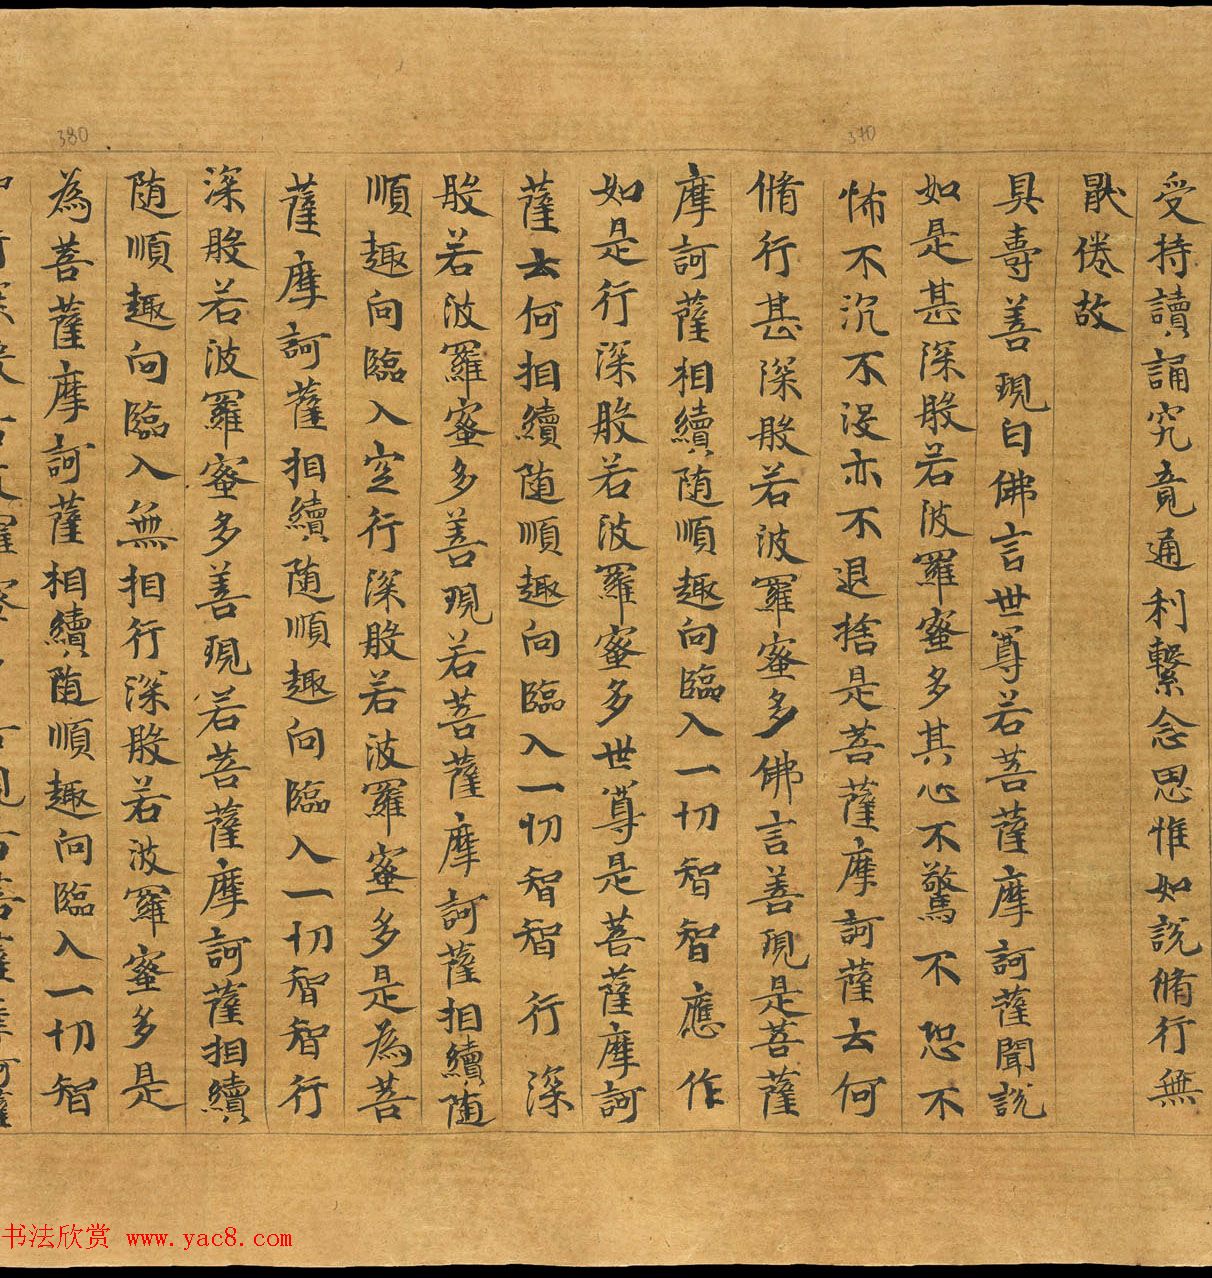 370
380
受持讀誦究竟通利繫念思惟如說脩行無
猒倦故
具壽善現白佛言世尊若菩薩摩訶薩聞說
如是甚深般若波羅蜜多其心不驚不恐不
怖不沉不没亦不退捨是菩薩摩訶薩云何
脩行甚深般若波羅蜜多佛言善現是菩薩
摩訶薩相續随順趣向臨入一切智智應作
如是行深般若波羅蜜多世尊是菩薩摩訶
薩云何相續随順趣向臨入一切智智行深
般若波羅蜜多善現若菩薩摩訶薩相續随
順趣向臨入空行深般若波羅蜜多是為菩
薩摩訶薩相續随順趣向臨入一切智智行
深般若波羅蜜多善現若菩薩摩訶薩相續
随順趣向臨入無相行深般若波羅蜜多是
為菩薩摩訶薩相續随順趣向臨入一切智
书法欣赏 www.yac8.com